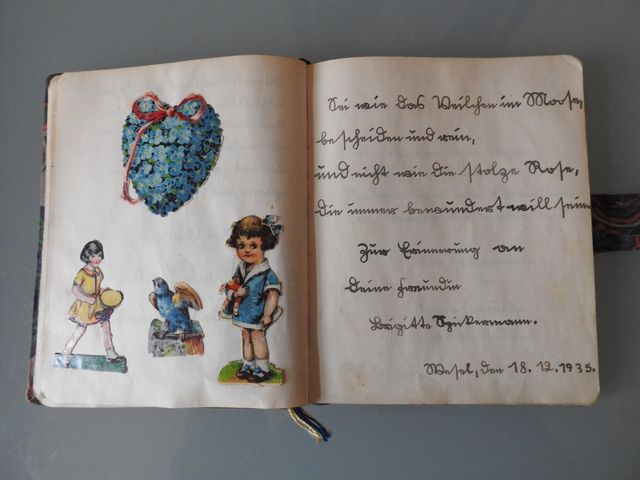 Sei wie das Veilchen im Moose,
bescheiden und rein,
und nicht wie die stolze Rose,
die immer bewundert will sein
Zur Erinnerung an
deine Freundin
Brigitte Spickermann.
Wesel, den 18. 12. 1935.